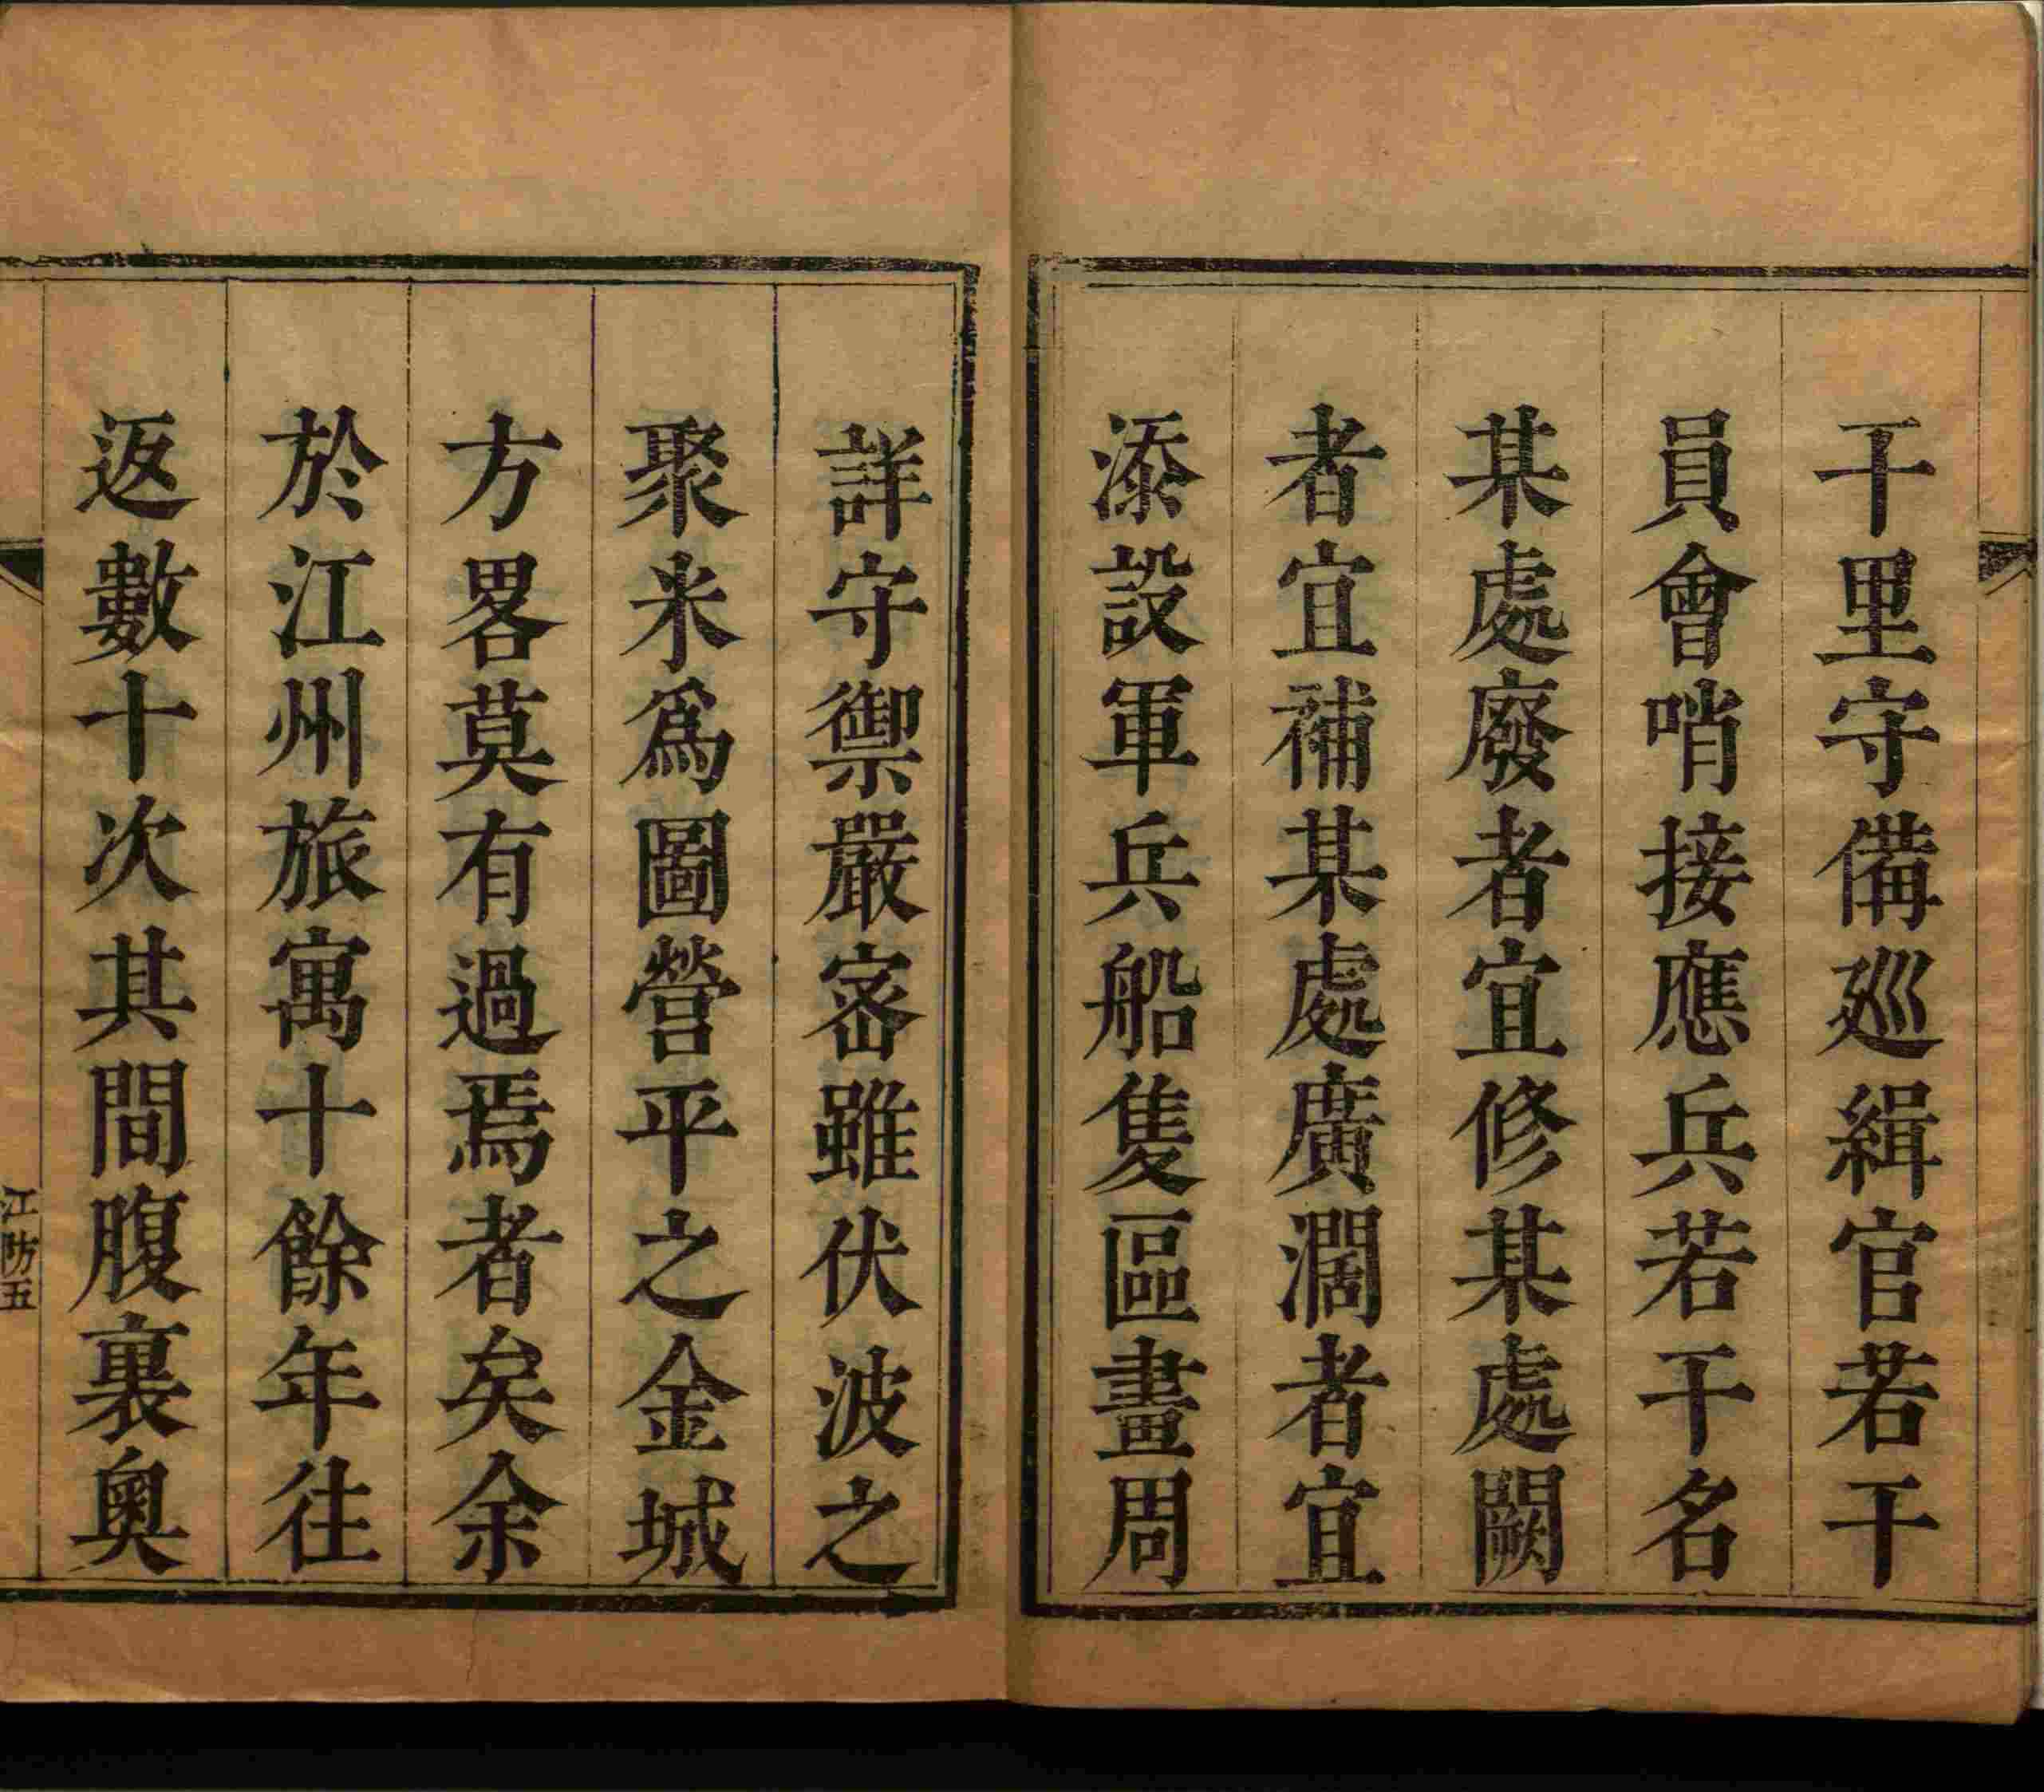 干里守備廵緝官若干
員會哨接應兵若干名
某處廢者宜修某處闕
者宜補某處廣濶者宜
添設軍兵船隻區畫周
詳守禦嚴宻雖伏波之
聚米爲圖營平之金城
方畧莫有過焉者矣余
於江州旅寓十餘年往
返數十次其間腹裏奥
江防五